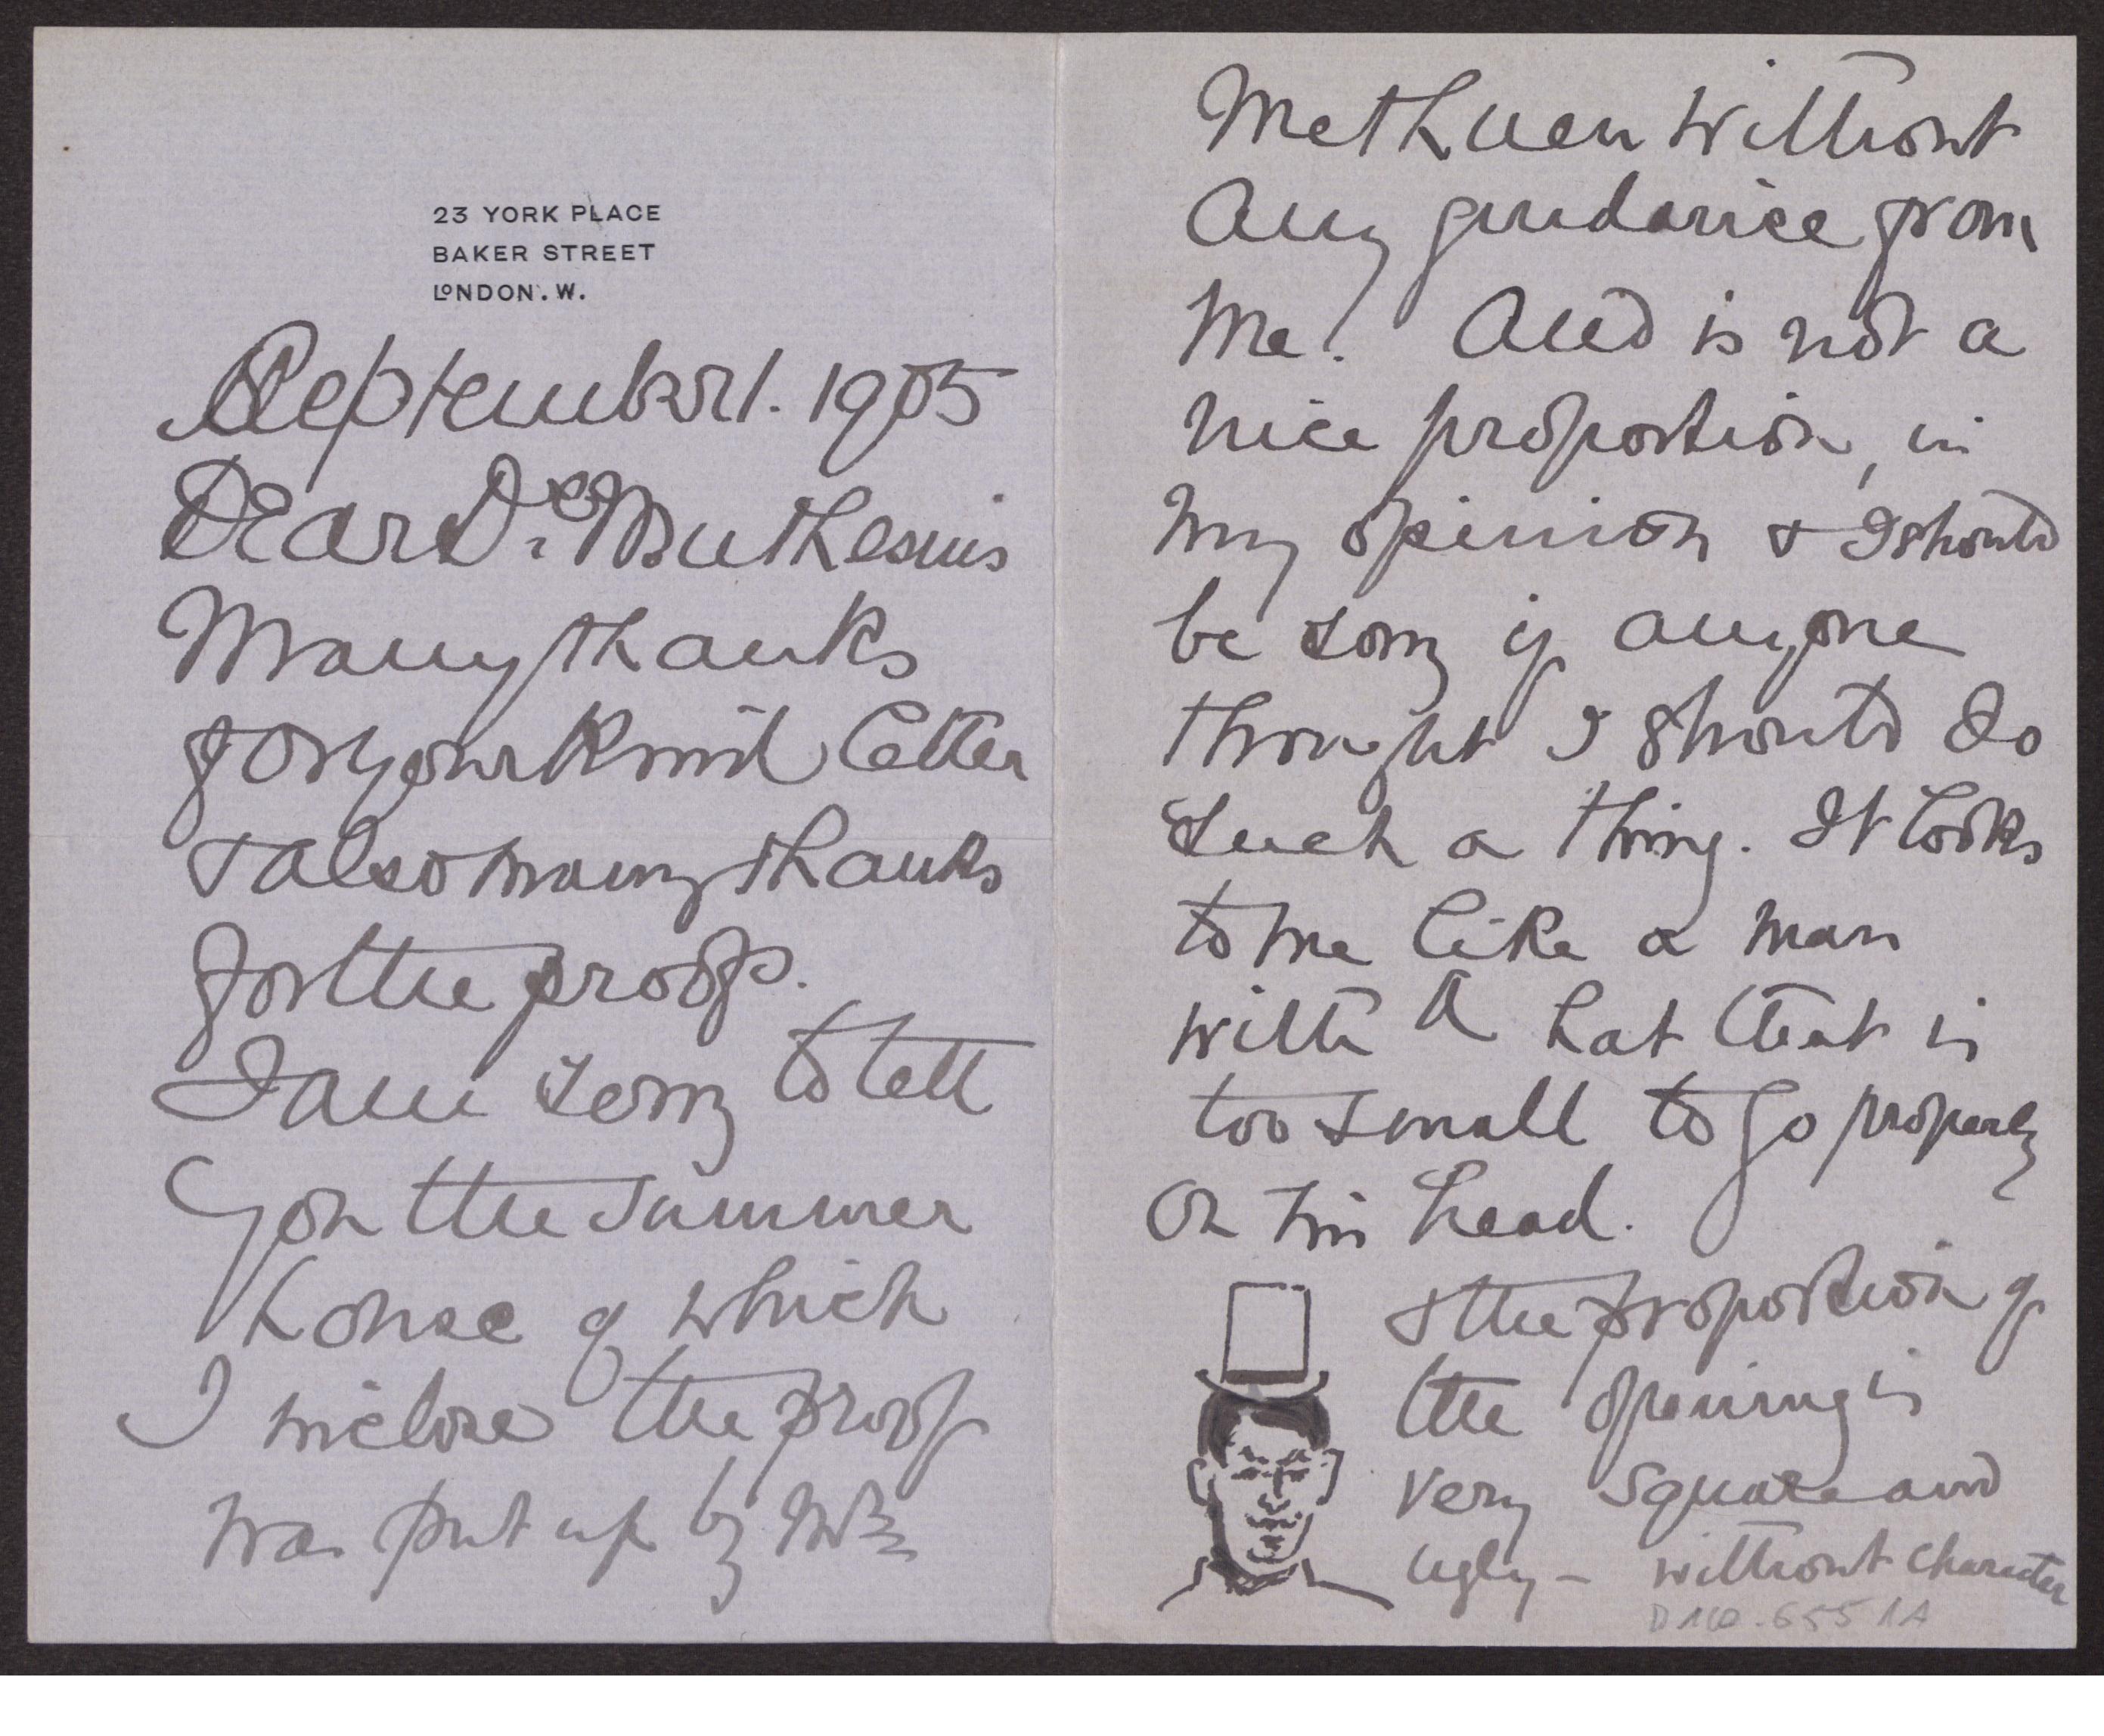 23 YORK PLACE
BAKER STREET
LONDON. W.
September 1. 1905
Dear Dr. Muthesius
Many thanks
for your kind letter
& also many thanks
for the proofs.
I am sorry to tell
you the summer
house of which
I inclose the proof
was put up by Mr
Methuen without
any guidance from
me. And is not a
nice proportion, in
my opinion & I should
be sorry if anyone
thought I should do
such a thing. It looks
to me like a man
with a hat that is
too small to go properly
on his head.
& the proportion of
the opening is
very square and
ugly – without character
D 102-6551A